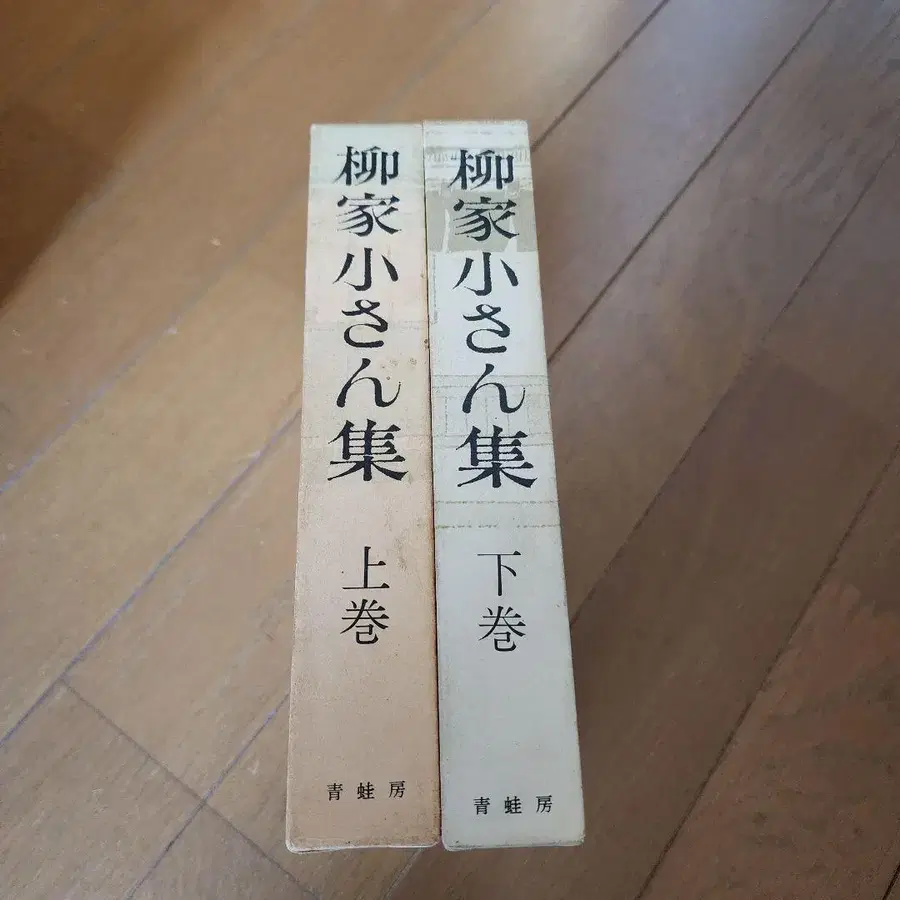 柳家小さん集
上巻
青蛙房
柳家小さん集
下巻
青蛙房